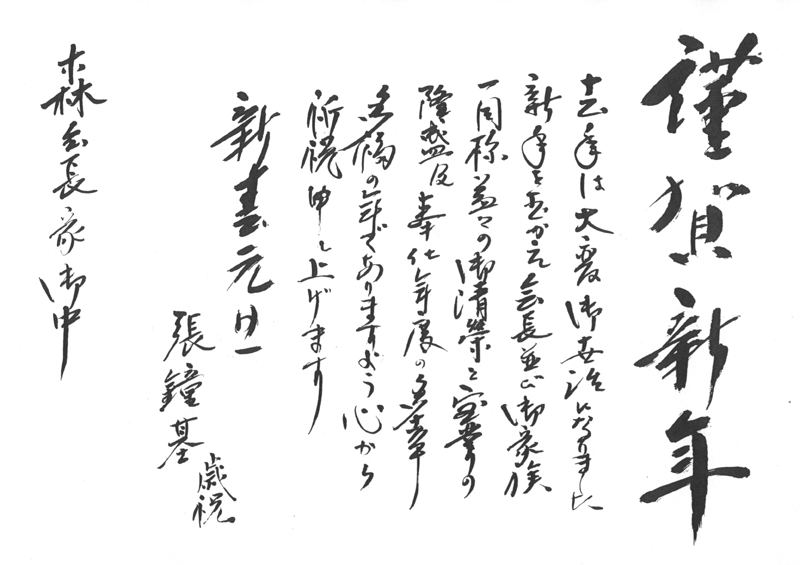 謹賀新年
去年は大変御世話になりました
新年を迎かえ会長並び御家族
一同様益々の御清栄と宝業の
隆盛及奉仕年度の多幸
多福の年でありますよう心から
祈祝申し上げます
新春元旦
張鐘基
歳祝
森会長家御中